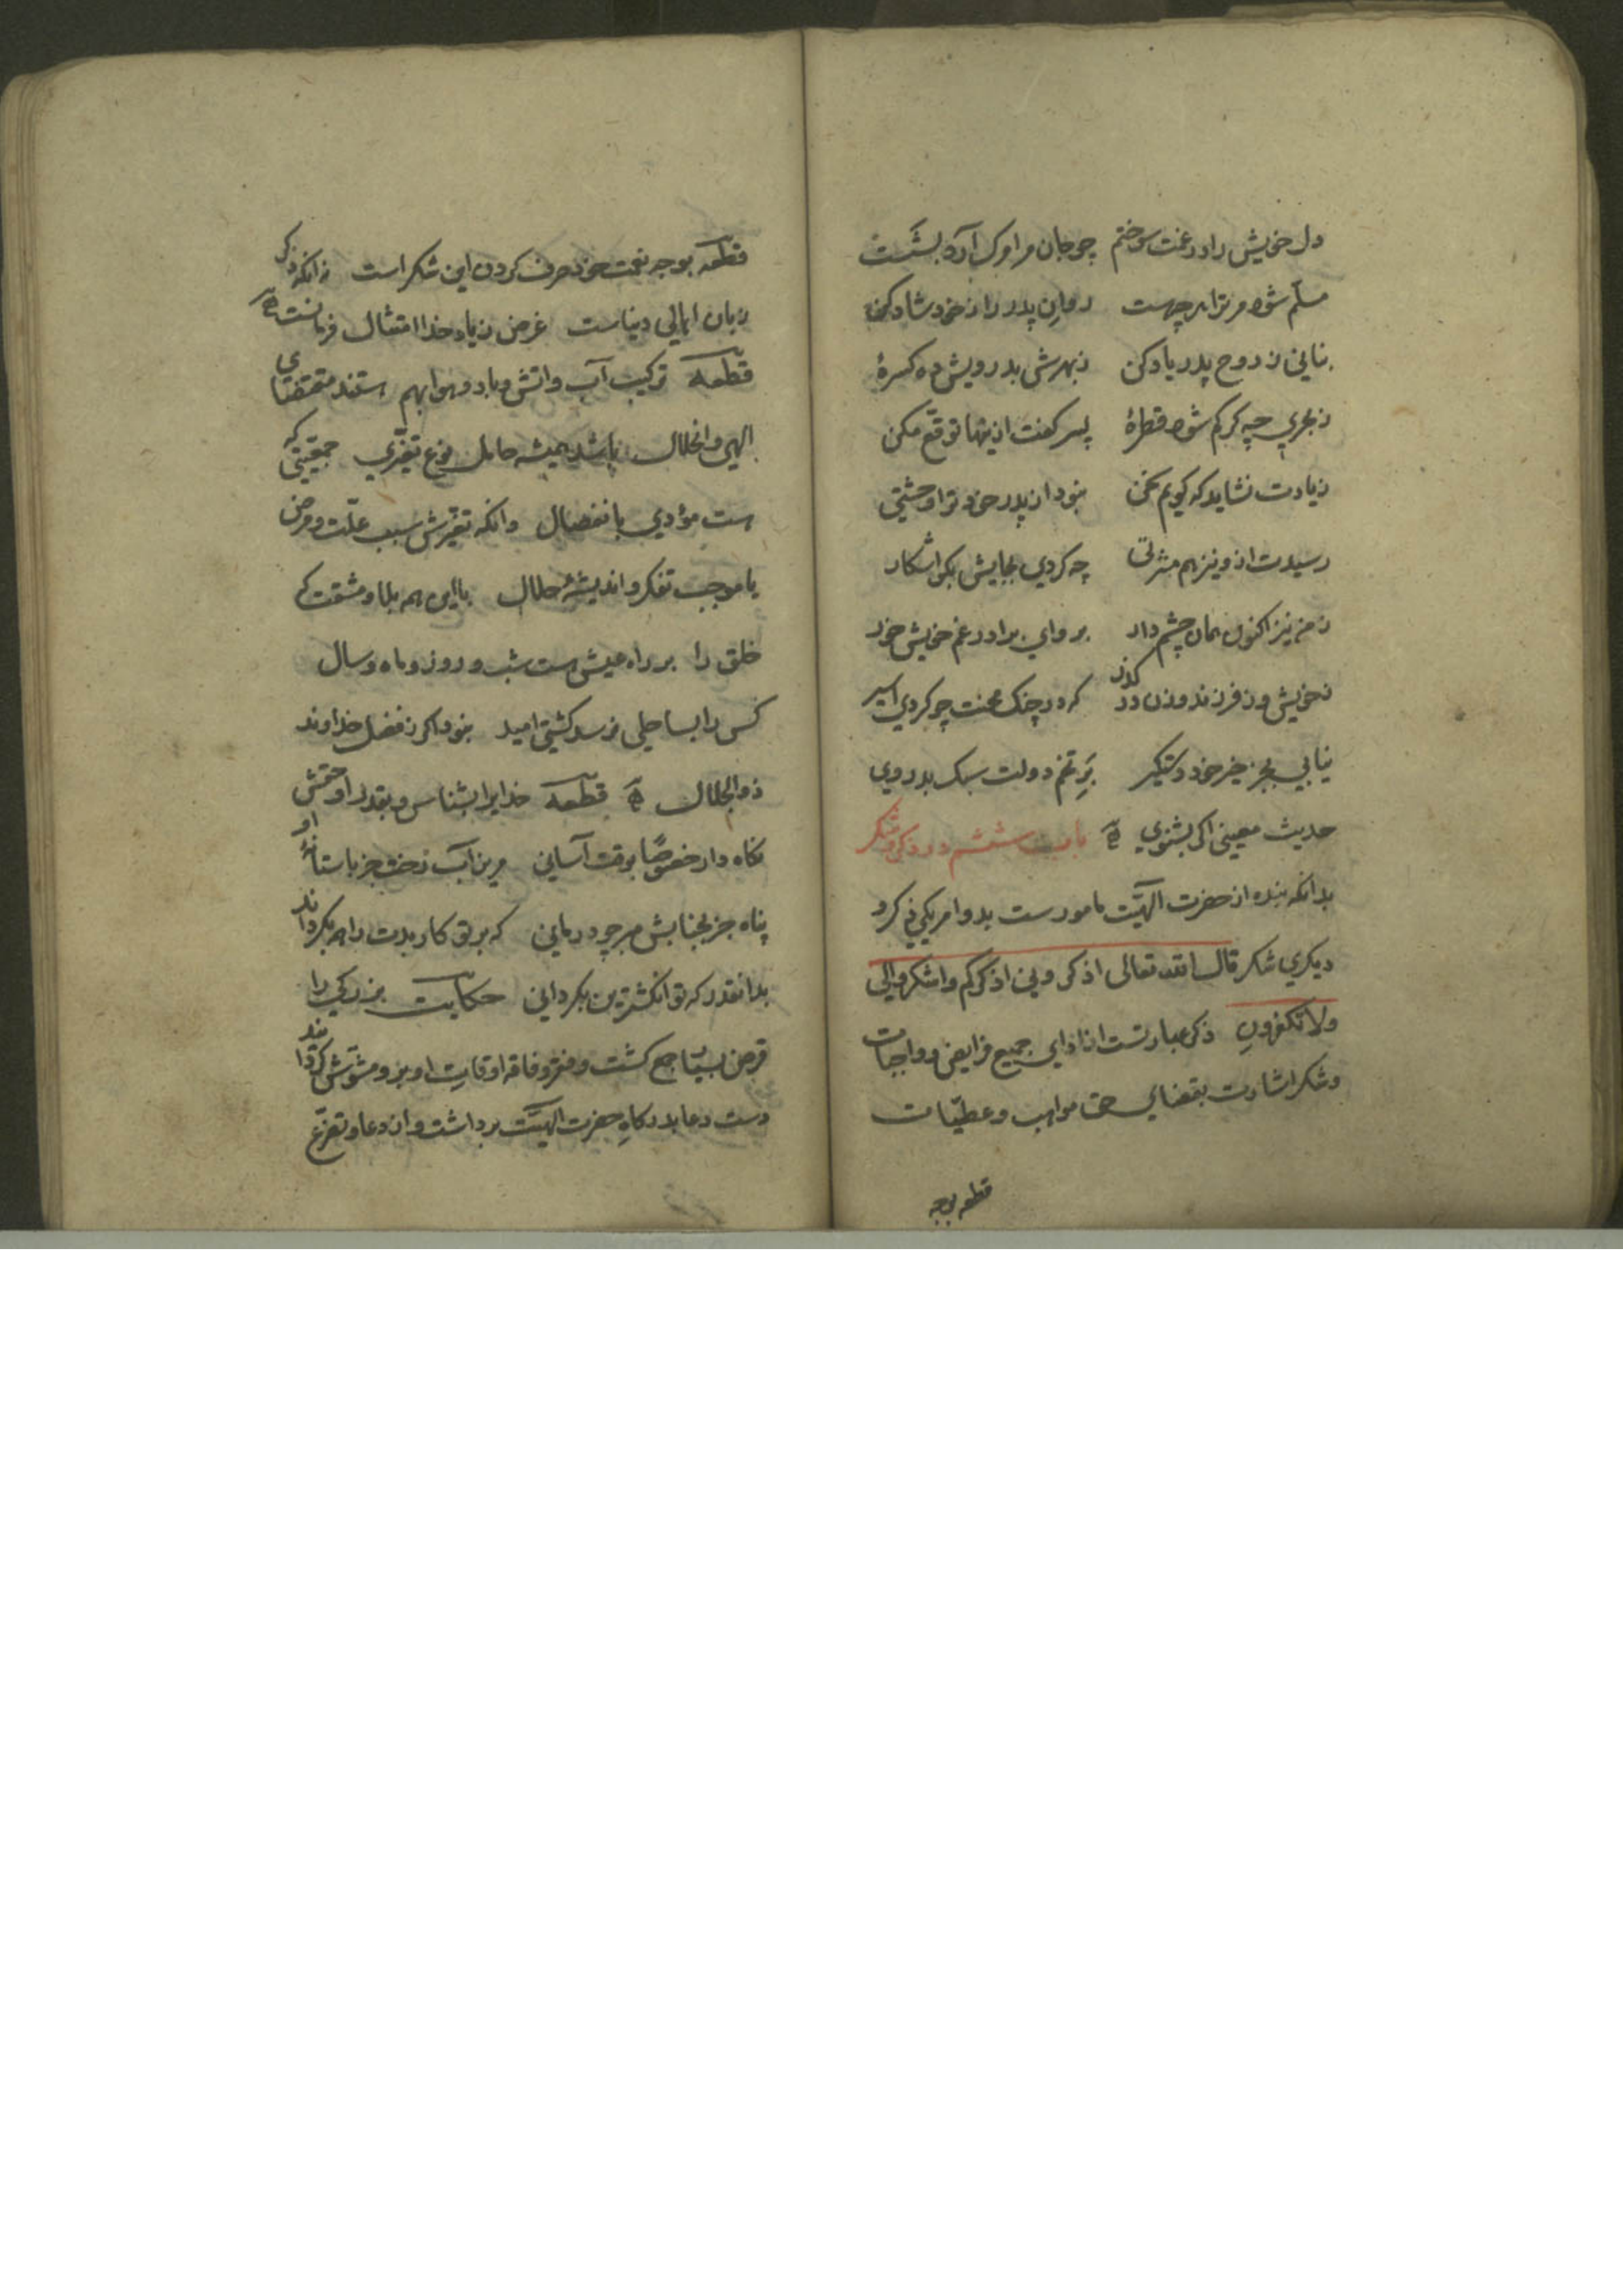 دل خویش را در غمت سوختم چو جان مر اورک آرد بشست
مسلّم شود مر ترا هر چهست روانِ پدر را ز خود شاد کن
بنانی ز روح پدر یاد کن ز بهرش بدرویش ده کسرهٔ
ز بحری چه کم شود قطرهٔ پسر کفت ازینها توقع مکن
زیادت نشاید که کویم سخن نبود از پدر خود ترا وحشتی
رسیدت ازو نیز هم ثروتی چه کردی بجایش بکو آشکار
ز من نیز اکنون همان چشم دار برو ای برادر غم خویش خور
ز خویش و ز فرزند و زن در کذر که در چنک محنت چو کردی اسیر
نیابی بجز خیر خود دستکیر بَرِ تخم دولت سبک بدروی
حدیث معینی اکر بشنوی باب ششم در ذکر و شکر
بدانکه بنده از حضرت الهیّت مامورست بدو امر یکی ذکر و
دیکری شکر قال الله تعالی اذکرونی اذکرکم واشکروا لی
ولا تکفرونِ ذکر عبارتست از ادای جمیع فرایض و واجبات
و شکر اشارت بقضای حق مواهب و عطیّات
قطعه بوجه
قطعه بوجه نعمت خود صرف کردن این شکر است زانکه ذکر
زبان اهالی دنیاست غرض ز یاد خدا امتثال فرمانست
قطعه ترکیب آب و اتش و باد و هوا بهم هستند مقتضای
الهی و انحلال باشد همیشه حامل نوع تغیّری جمعیتی که
هست مؤدی بانفصال وانکه تغیّرش سبب علّت و مرض
یا موجب تفکر و اندیشهٔ حلال با این همه بلا و مشقت که
خلق را بر راه عیش هست شب و روز و ماه و سال
کس را بساحلی نرسد کشتی امید نبود اکر ز فضل خداوند
ذوالجلال قطعه خدایرا بشناس و بقدر او حقش
نکاه دار خصوصًا بوقت آسانی مریز آب رخت جز باستانهٔ او
پناه جز بجنابش مبر چو درمانی که بر تو کار بدت راهم بکرداند
بدانقدر که تو انکشترین بکردانی حکایت بزرکی را
قرض بسیار جمع کشت و فقر و فاقه اوقاتِ او برو مشوّش کردانید
دست دعا بدرکاهِ حضرت الهیّت برداشت و از دعا و تضرّع